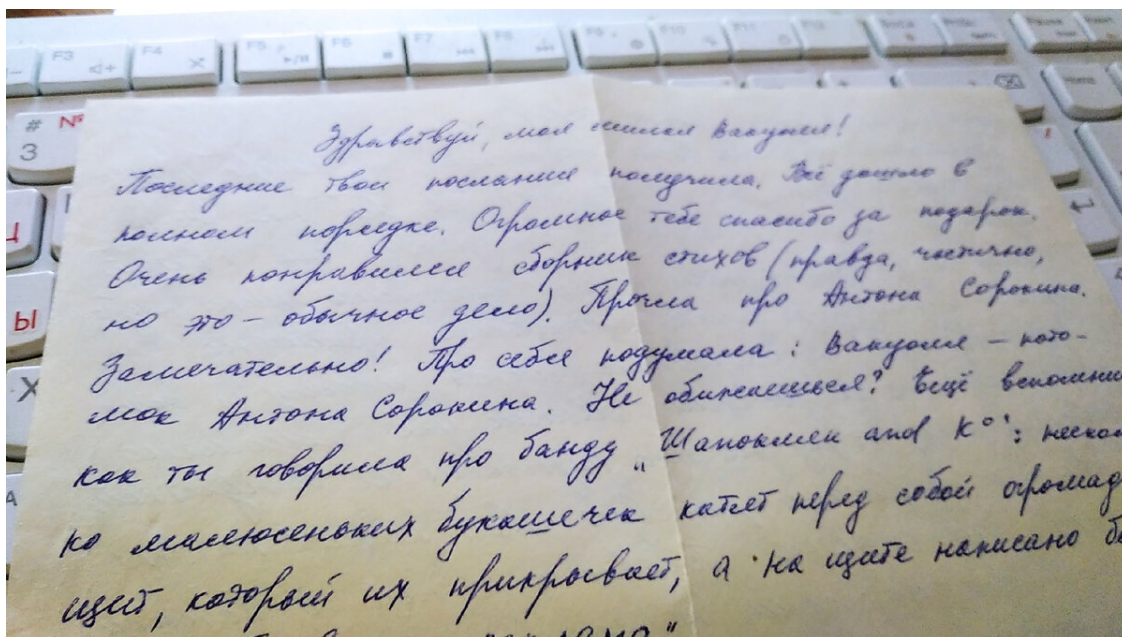 F3
F4
F5
F6
F7
F8
F9
F10
F11
F12
Home
# №
3
Ц
Ы
Х
Здравствуй, моя милая Вакуоля!
Последние твои послания получила. Всё дошло в
полном порядке. Огромное тебе спасибо за подарок.
Очень понравился сборник стихов (правда, частично,
но это – обычное дело). Прочла про Антона Сорокина.
Замечательно! Про себя подумала: Вакуоля – пото-
мок Антона Сорокина. Не обижаешься? Ещё вспомни
как ты говорила про банду „Шапокляк and K°": нескол
ко малюсеньких букашечек катят перед собой огромад
щит, который их прикрывает, а на щите написано б